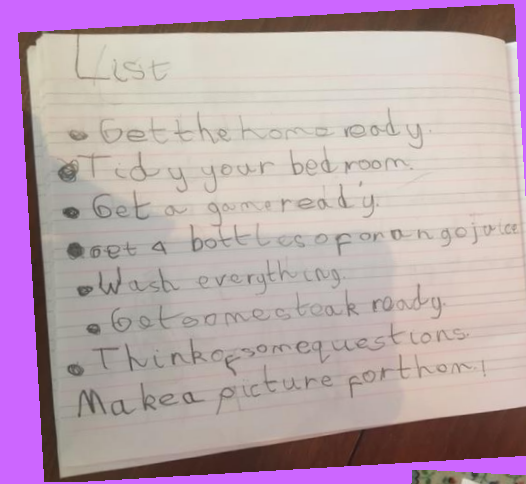 List
• Get the home ready.
• Tidy your bedroom.
• Get a game ready.
• Get 4 bottles of orango juice
• Wash everything.
• Get some steak ready.
• Think of some questions.
Make a picture for them!